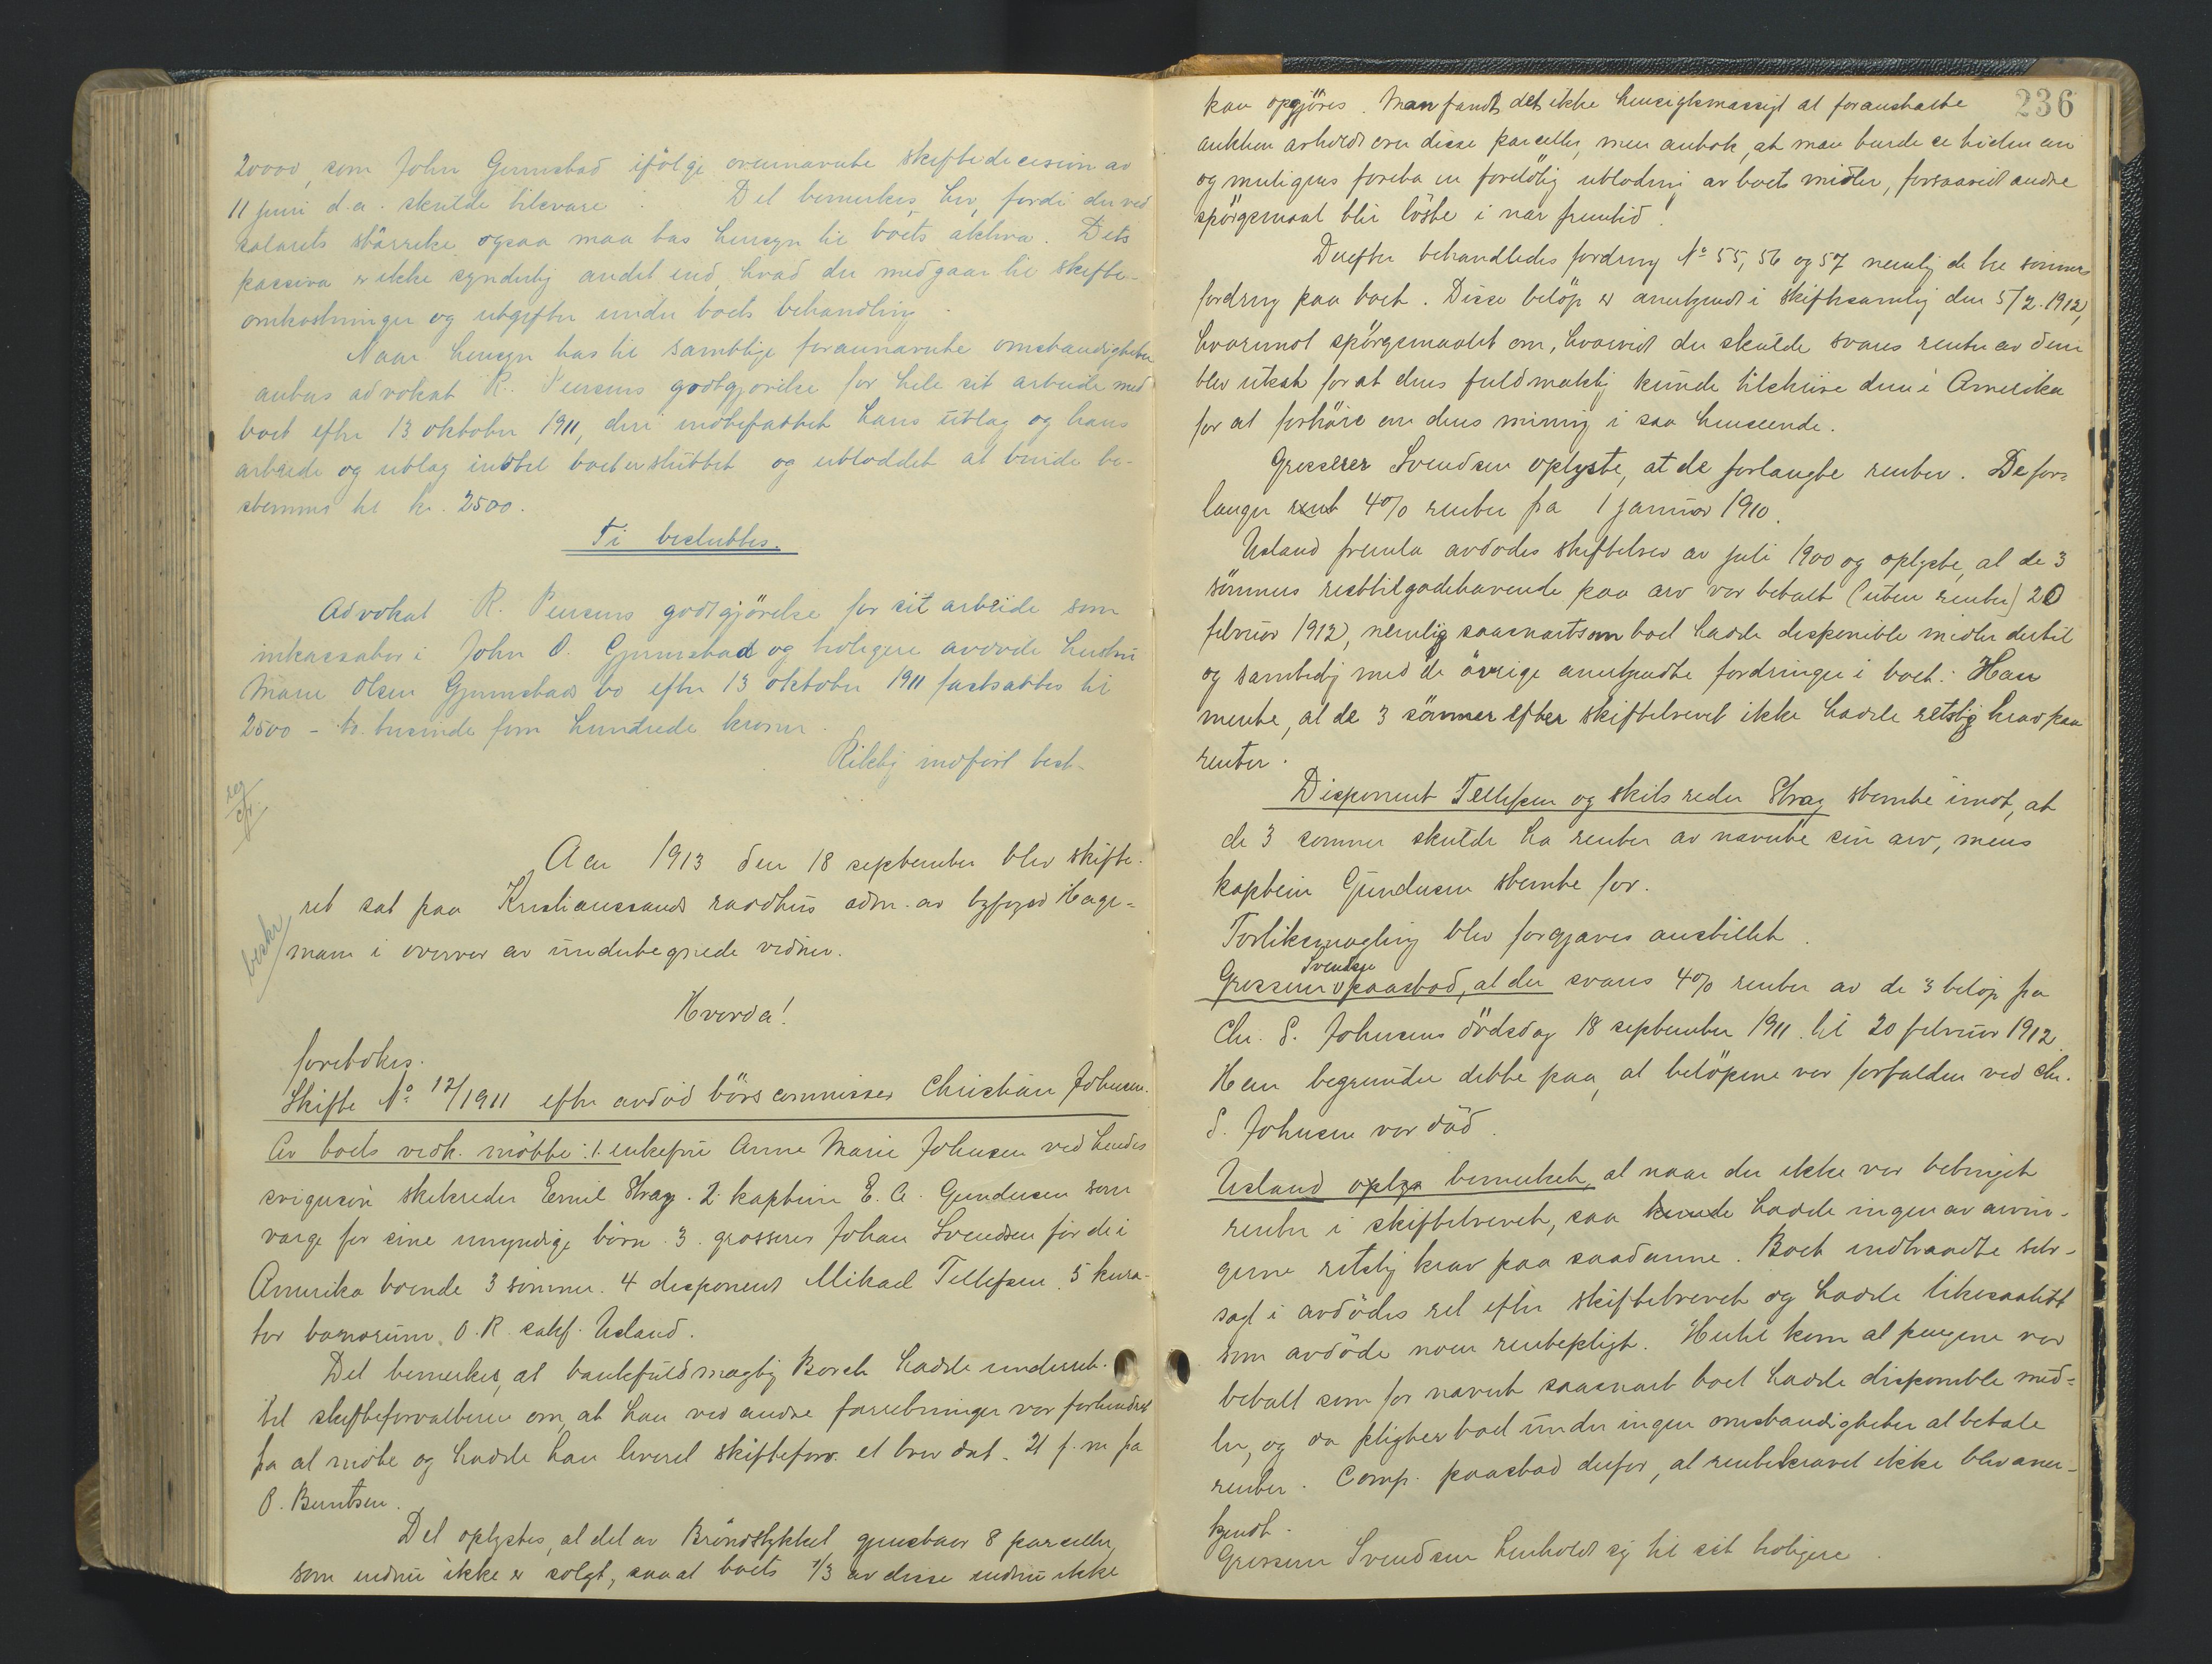 20000, som John Gunnsbad ifölge ovennævnte skiftedecision av
11 juni d.a. skulde tilsvare. Det bemerkes her, fordi der ved
salærets störrelse ogsaa maa tas hensyn til boets aktiva. Dets
passiva er ikke synderlig andet end hvad der medgaar til skifte-
omkostninger og utgifter under boets behandling.
Naar hensyn tas til samtlige forannævnte omstændigheter
antas advokat R. godtgjørelse for hele sit arbeide med
boet efter 13 oktober 1911, deri indbefattet hans utlag og hans
arbeide og utlag indtil boet er sluttet og utloddet at burde be-
stemmes til kr. 2500.
Ti besluttes.
Advokat R. godtgjörelse for sit arbeide som
inkassator i John O. Gjennestad og tidligere avdøde hustru
Marie Olsen Gjennestads bo efter 13 oktober 1911 fastsættes til
2500 - to tusinde fem hundrede kroner.
Riktig indført best.
reg
Aar 1913 den 18 september blev skifte-
ret sat paa Kristianssands raadhus adm. av byfoged Hage-
mann i overvær av undertegnede vidner.
beskr
Hvorda!
foretokes.
Skifte No 12/1911 efter avdöd börscommissær Christian Johnsen.
Av boets vedk. mötte: 1. enkefru Anne Marie Johnsen ved hendes
svigersön skibsreder Emil Stray. 2. kaptein E. A. Gundersen som
værge for sine umyndige börn. 3. grosserer Johan Svendsen for de i
Amerika boende 3 sönner. 4 disponent Mikael Tellefsen. 5 kura-
tor bonorum O. R. sakf. Usland.
Det bemerkes, at bankfuldmægtig Borch hadde underret-
tet skifteforvalteren om, at han ved andre forretninger var forhindret
fra at møte og hadde han leveret skifteforv. et brev dat. 21 f. m. fra
O. Berntsen.
Det oplystes, at det av Bröndstykket gjenstaar 8 parceller,
som endnu ikke er solgt, saa at boets 1/3 av disse endnu ikke
236
kan opgjöres. Man fandt det ikke hensigtsmæssigt at foranstalte
auktion avholdt over disse parceller, men antok, at man burde se tiden an
og muligens foreta en foreløbig utlodning av boets midler, forsaavidt andre
spörgsmaal blir löste i nær fremtid.
Derefter behandledes fordring No 55, 56 og 57 nemlig de tre sönners
fordring paa boet. Disse belöp er anerkjendt i skiftesamling den 5/2. 1912,
hvorimot spörgsmaalet om, hvorvidt der skulde svares renter av dem
blev utsat for at deres fuldmægtig kunde tilskrive dem i Amerika
for at forhöre om deres mening i saa henseende.
Grosserer Svendsen oplyste, at de forlangte renter. De for-
langer rent 4% renter fra 1 januar 1910.
Usland fremla avdødes skiftebrev av juli 1900 og oplyste, at de 3
sönners resttilgodehavende paa arv var betalt (uten renter) 20
februar 1912, nemlig saasnart som boet hadde disponible midler dertil
og samtidig med de övrige anerkjendte fordringer i boet. Han
mente, at de 3 sönner efter skiftebrevet ikke hadde retslig krav paa
renter.
Disponent Tellefsen og skibsreder Stray stemte imot, at
de 3 sönner skulde ha renter av nævnte sin arv, mens
kaptein Gundersen stemte for.
Forliksmægling blev forgjæves anstillet.
Svendsen
Grosserer v paastod, at der svares 4% renter av de 3 belöp fra
Chr. S. Johnsens dödsdag 18 september 1911 til 20 februar 1912.
Han begrunder dette paa, at belöpene var forfalden ved Chr.
S. Johnsen var död.
Usland oplys bemerket, at naar der ikke var betinget
renter i skiftebrevet, saa kunde hadde ingen av arvin-
gerne retslig krav paa saadanne. Boet indtraadte selv-
sagt i avdödes ret efter skiftebrevet og hadde likesaalitt
som avdöde noen rentepligt. Hertil kom at pengene var
betalt som for nævnt saasnart boet hadde disponible mid-
ler, og da pligter boet under ingen omstændigheter at betale
renter. Comp. paastod derfor, at rentekravet ikke blev aner-
kjendt.
Grosserer Svendsen henholdt sig til sit tidligere.